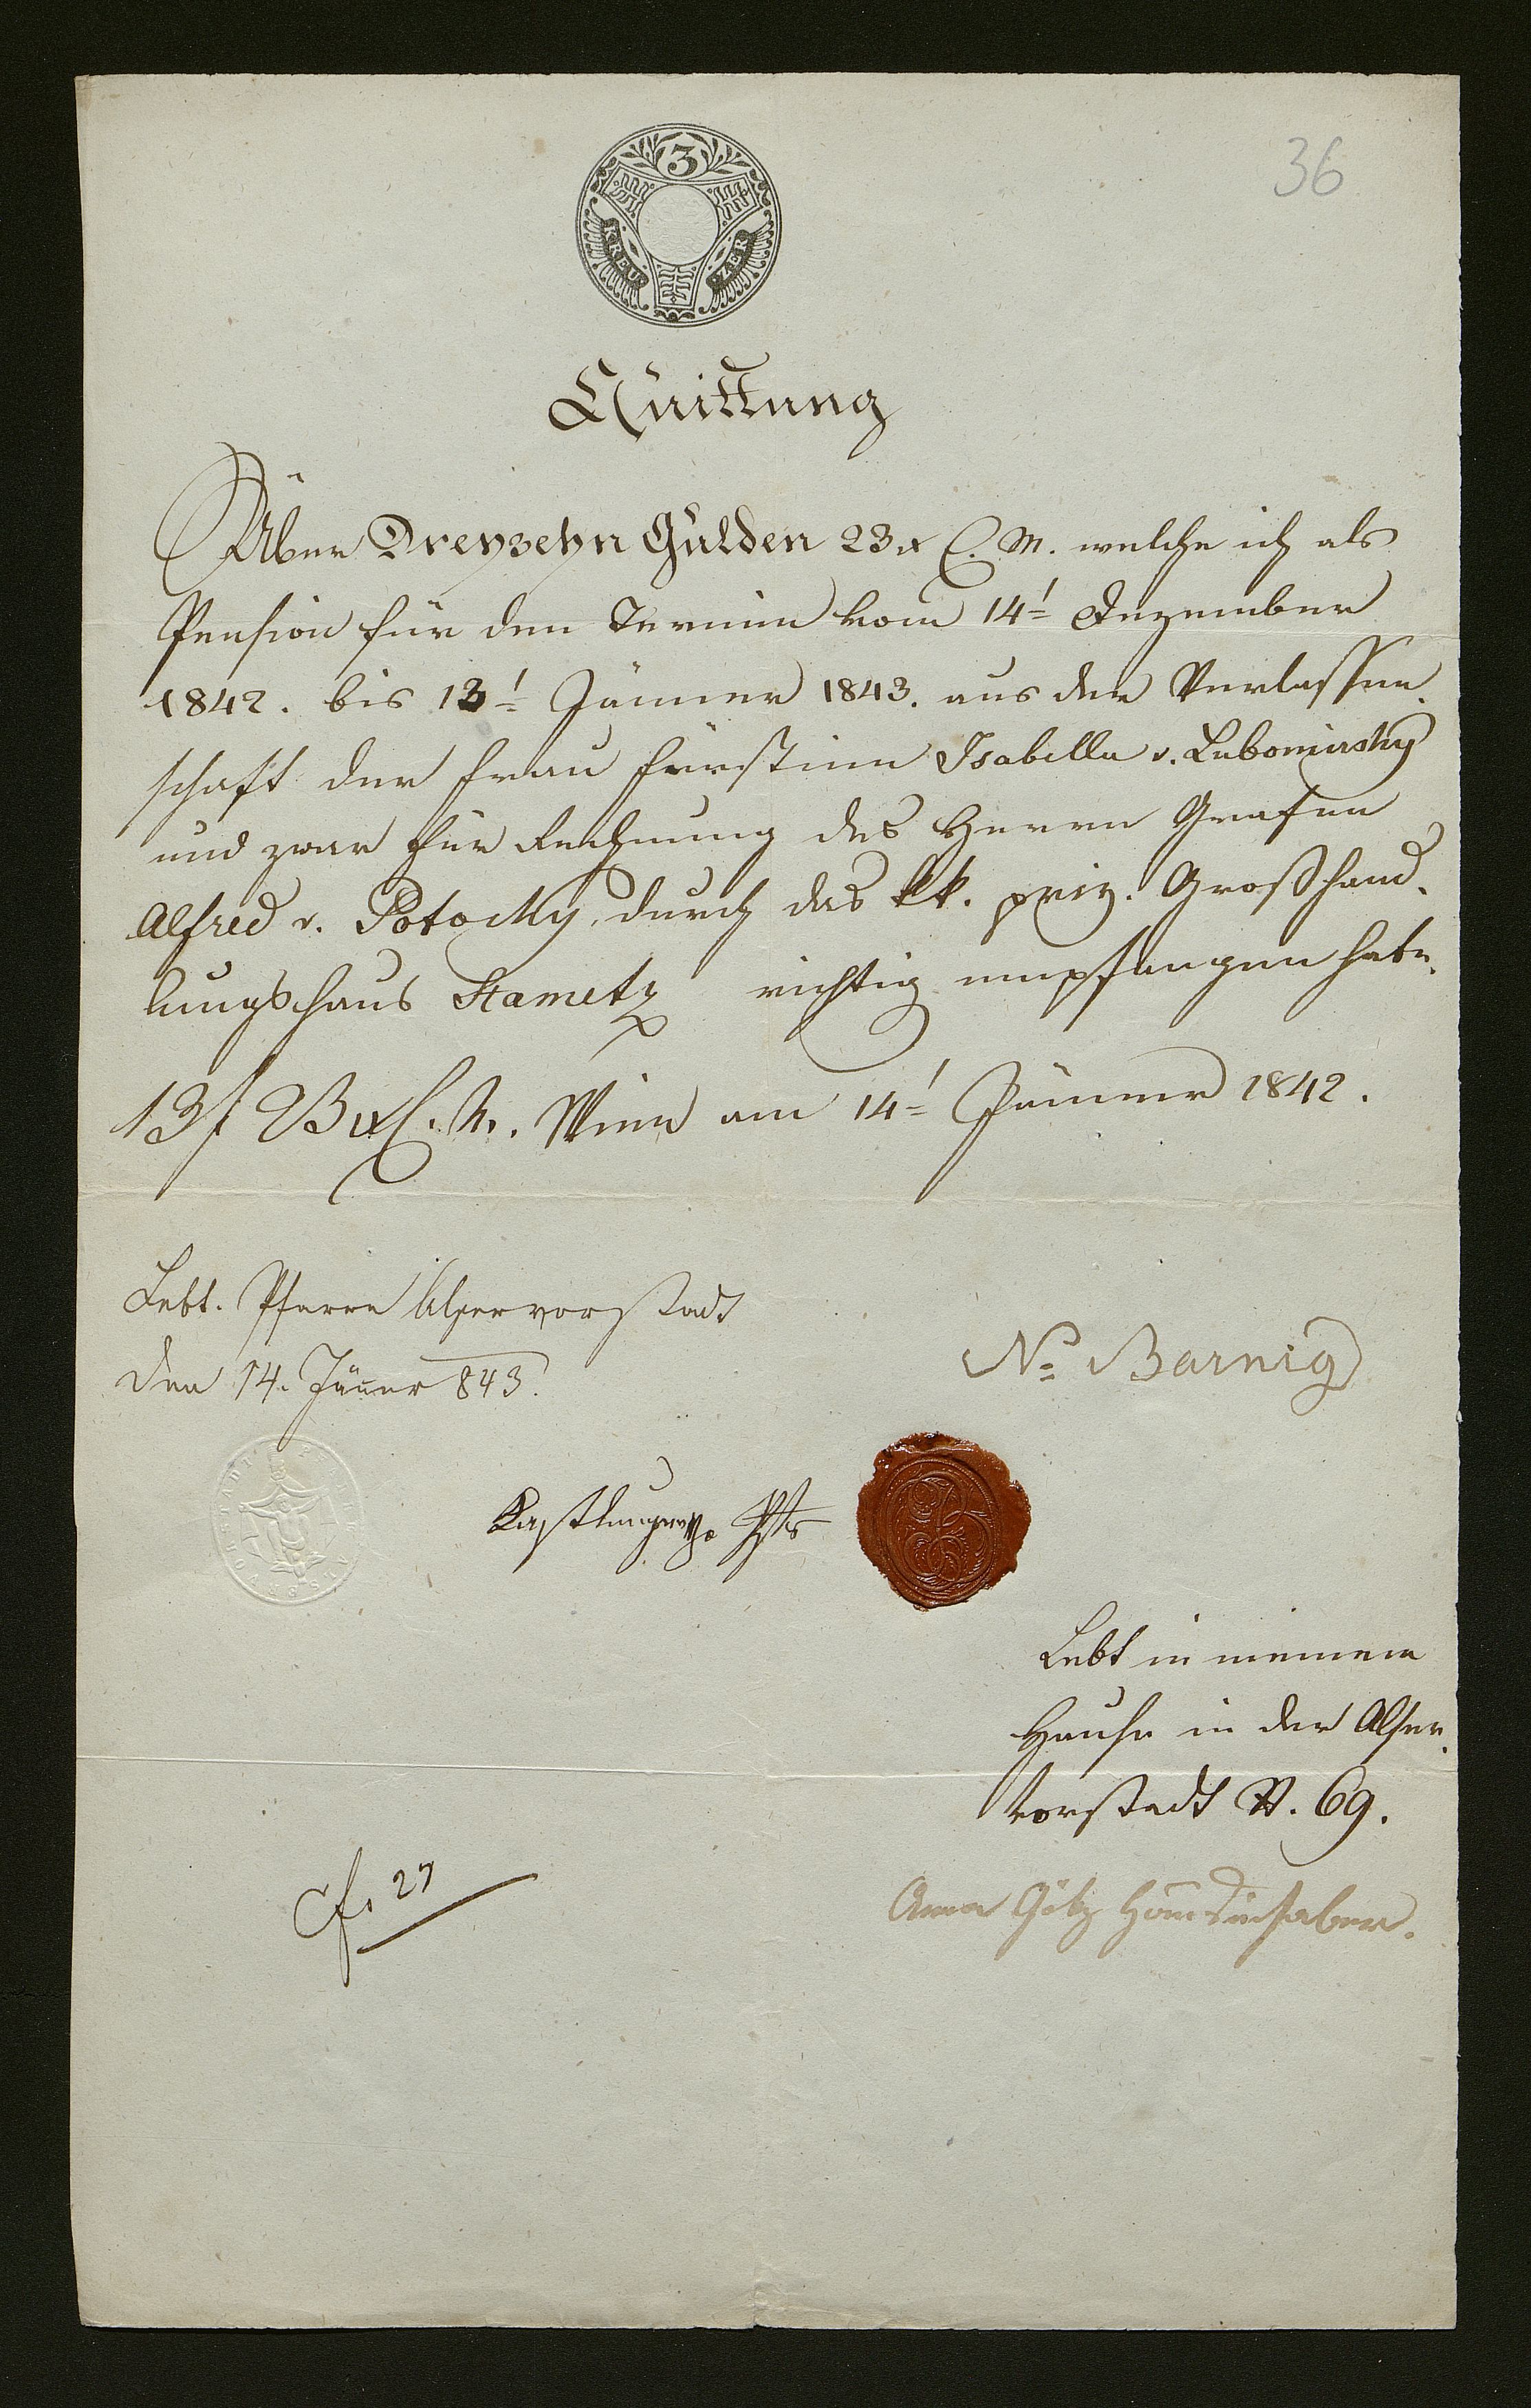 36
3
KREU ZER
Quittung
Über Dreyzehn Gulden 23 x C. M. welche ich als
Pension für den Termin vom 14t Dezember
1842. bis 13t Jänner 1843. aus der Verlassen-
schaft der Frau Fürstinn Isabella v. Lubomirsky
und zwar für Rechnung des Herrn Grafen
Alfred v. Potocky, durch das kk. priv. Großhand-
lungshaus Stametz richtig empfangen habe.
13 f 23 x C. M. Wien am 14t Jänner 1842.
Lebt. Pfarre Alservorstadt
den 14. Jänner 843.
No Barnig
Lebt in meinem
Hause in der Alser-
vorstadt N. 69.
Anna Götz Hausinhaber.
Cf. 27